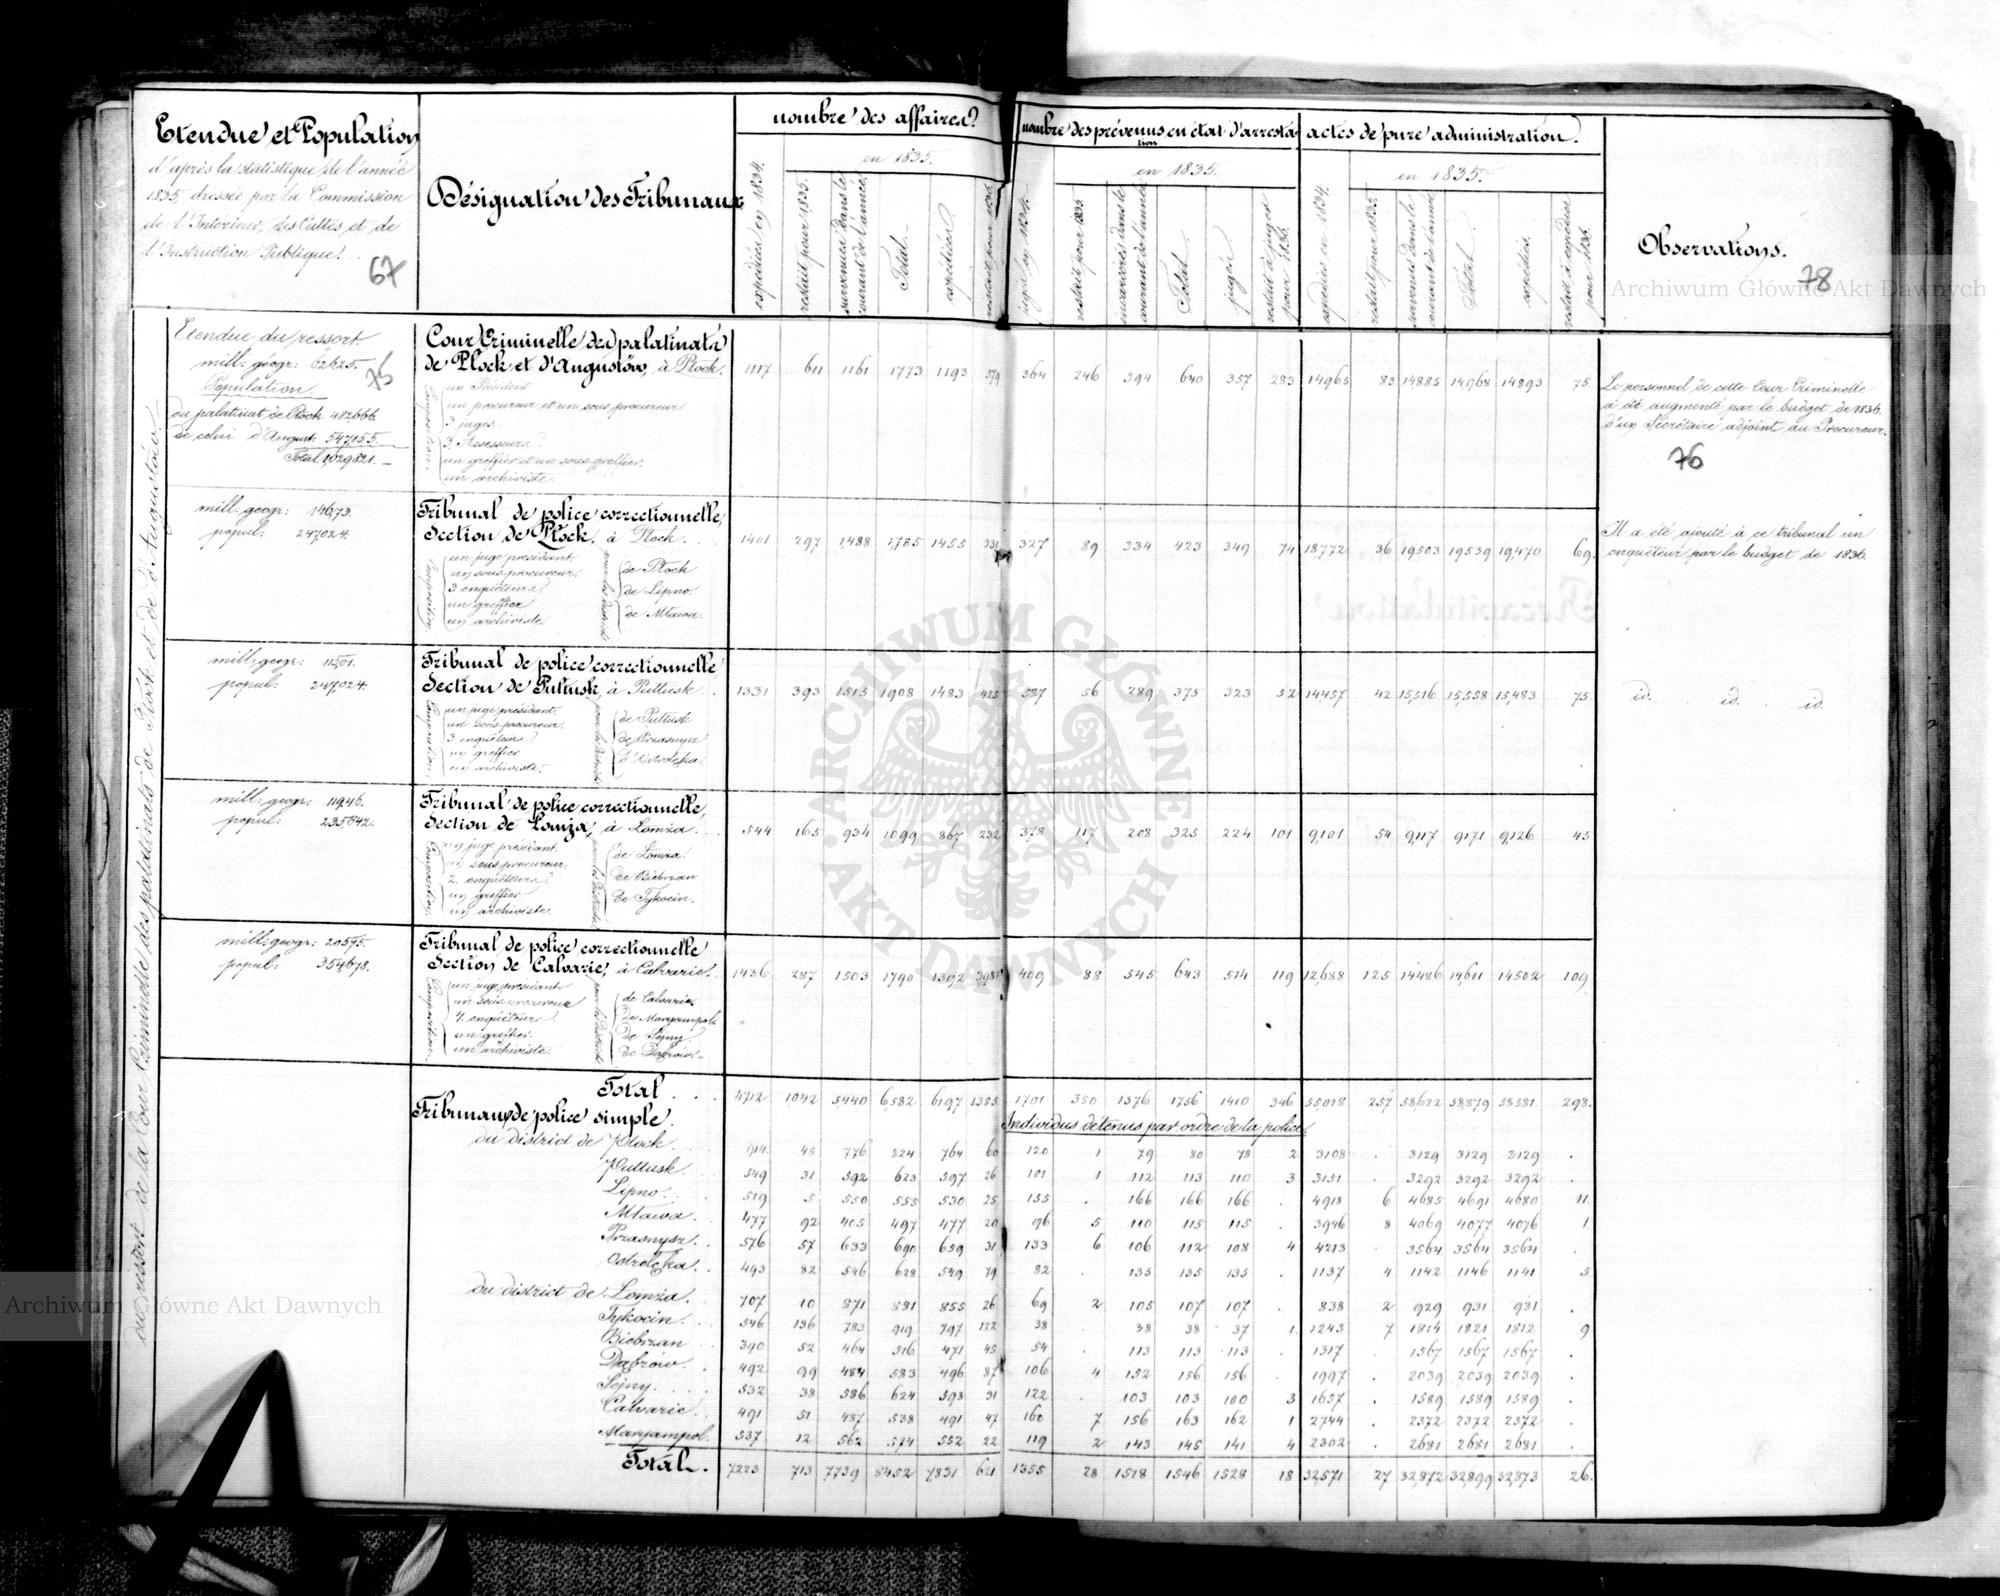 Etendue et Population
d'après la statistique de l'année
1835, dressée par la Commission
de l'Intérieur, des Cultes et de
l'Instruction Publique.
67
Désignation des Tribunaux
nombre des affaires
en 1835.
expédiées en 1834.
restait pour 1835.
survenues dans le courant de l'année
Total
expédiées
nombre des prévenus en état d'arrestation
en 1835.
restait pour 1835
incarcérés dans le courant de l'année
Total
jugés
restait à juger pour 1836.
actes de pure administration.
en 1835.
expédiés en 1834.
restait pour 1835.
survenus dans le courant de l'année
Total
expédiés
restait à expédier pour 1836.
Observations.
78
Archiwum Główne Akt Dawnych
au ressort de la Cour Criminelle des palatinats de Plock et de d'Augustów
Etendue du ressort
mill: géogr: 626 25.
75
Population.
du palatinat de Plock 482,666
de celui d'August: 547,155
Total 1,029,821.
Cour Criminelle des palatinats
de Plock et d'Augustów, à Plock.
Composition
un Président
un procureur et un sous procureur
3 juges
3 Assesseurs
un greffier et un sous greffier.
un archiviste.
1117 611 1161 1773 1193 579 364 246 394 640 357 283 14965 83 14885 14968 14893 75.
Le personnel de cette Cour Criminelle
a été augmenté par le budget de 1836.
d'un Secrétaire adjoint au Procureur.
76
mill: geogr: 146,73.
popul: 247,024.
Tribunal de police correctionnelle,
Section de Plock, à Plock.
Composition
un juge président
un sous procureur.
3 enquêteurs
un greffier
un archiviste
pour les districts
de Plock
de Lipno
de Mława.
1401 297 1,488 1,785 1455 330 327 89 334 423 349 74 18,772 36 19503 19,539 19,470 69.
Il a été ajouté à ce tribunal un
enquêteur par le budget de 1836.
mill: geogr: 115,01.
popul: 247,024.
Tribunal de police correctionnelle
Section de Pultusk, à Pultusk.
Composition
un juge président.
un sous procureur.
3 enquêteurs
un greffier
un archiviste.
de Pultusk
de Przasnysz
d'Ostrołęka.
1331 393 1515 1908 1483 425 587 56 289 375 323 52 14457 42 15,516 15,558 15,483 75.
id. id. id.
mill: geogr: 119,46.
popul: 235,642.
Tribunal de police correctionnelle,
Section de Lomża, à Lomża.
Composition
un juge président.
un sous procureur.
2. enquêteurs
un greffier
un archiviste.
de Lomża.
de Biebrzan
de Tykocin.
544 165 934 1099 867 232 378 117 208 325 224 101 9,101 54 9,117 9,171 9,126 45
mill: geogr: 205,95.
popul: 354,678.
Tribunal de police correctionnelle
Section de Calvarie, à Calvarie.
Composition
un juge président
un sous procureur
4. enquêteurs
un greffier.
un archiviste.
de Calvarie
de Maryampol
de Sejny
de Dąbrów.
1436 287 1503 1790 1392 398 409 88 545 643 514 119 12,688 125 14486 14,611 14502 109
Total 4712 1042 5440 6,582 6197 1385 1701 350 1376 1756 1410 346 55,018 257 58,622 58,879 58581 298.
Tribunaux de police simple.
Individus détenus par ordre de la police.
du district de Plock 914 48 776 824 764 60 120 1 79 80 78 2 3108 . 3129 3129 3129 .
Pultusk. 549 31 592 623 597 26 101 1 112 113 110 3 3131 . 3292 3292 3292 .
Lipno. 519 5 550 555 530 25 155 . 166 166 166 . 4918 6 4685 4691 4680 11.
Mława. 477 92 405 497 477 20 96 5 110 115 115 . 3946 8 4069 4077 4076 1.
Przasnysz. 576 57 633 690 659 31 133 6 106 112 108 4 4213 . 3564 3564 3564 .
Ostrołęka. 493 82 546 628 549 79 82 . 135 135 135 . 1137 4 1142 1146 1141 5
du district de Lomża. 707 10 871 881 855 26 69 2 105 107 107 . 838 2 929 931 931 .
Tykocin. 546 136 783 919 797 122 38 . 38 38 37 1. 1243 7 1814 1821 1812 9
Biebrzan 390 52 464 516 471 45 54 . 113 113 113 . 1317 . 1567 1567 1567 .
Dąbrów. 492 99 484 583 496 87 106 4 152 156 156 . 1997 . 2039 2039 2039 .
Sejny. 532 38 586 624 593 31 122 . 103 103 100 3 1657 . 1589 1589 1589 .
Calvarie. 491 51 487 538 491 47 160 7 156 163 162 1 2744 . 2372 2372 2372 .
Maryampol. 537 12 562 574 552 22 119 2 143 145 141 4 2302 . 2681 2681 2681 .
Total. 7223 713 7739 8452 7831 621 1355 28 1518 1546 1528 18 32,571 27 32,872 32,899 32,873 26.
ARCHIWUM GŁÓWNE
AKT DAWNYCH
Archiwum Główne Akt Dawnych